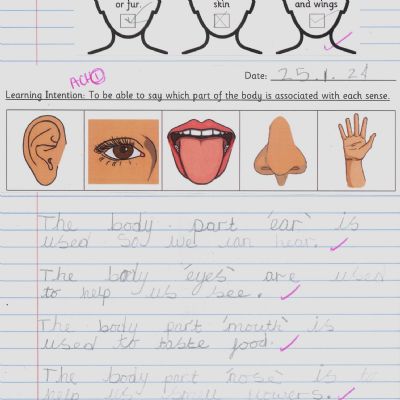 or fur.
skin
and wings
ACH ①
Date: 25.1.24
Learning Intention: To be able to say which part of the body is associated with each sense.
The body part 'ear' is
used so we can hear.
The body 'eyes' are used
to help us see.
The body part 'mouth' is
used to taste food.
The body part 'nose' is to
help us smell flowers.